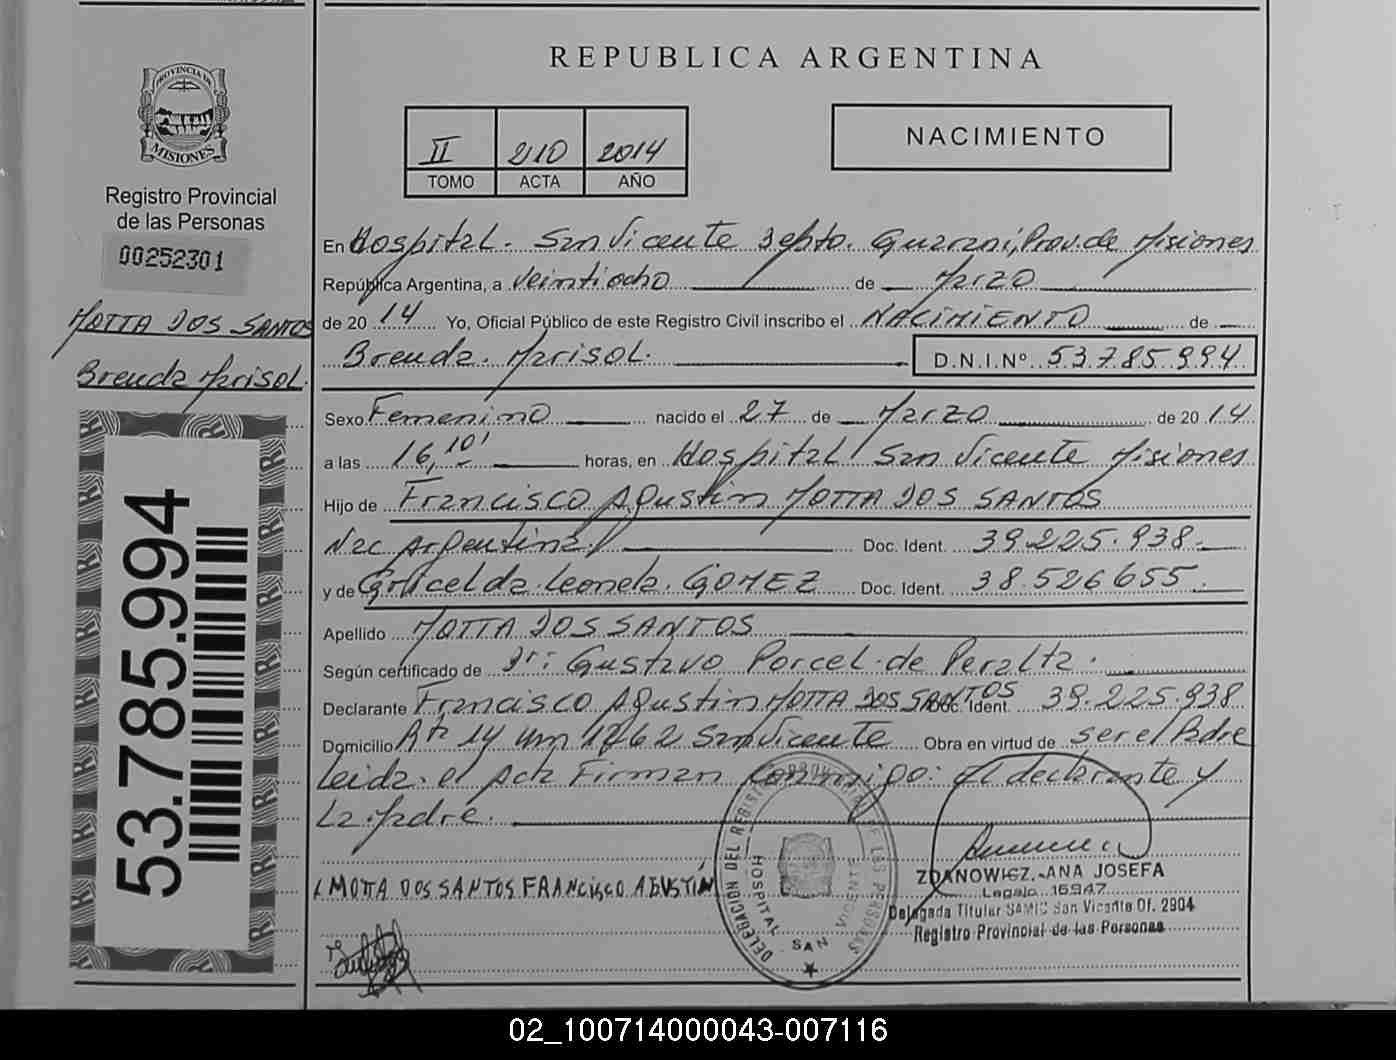 REPUBLICA ARGENTINA
PROVINCIA DE
MISIONES
Registro Provincial
de las Personas
00252301
MOTTA DOS SANTOS
Brenda Marisol.
53.785.994
II 210 2014
TOMO ACTA AÑO
NACIMIENTO
En Hospital. San Vicente Depto. Guarani, Prov. de Misiones
República Argentina, a veintiocho de Marzo
de 20 14 Yo, Oficial Público de este Registro Civil inscribo el NACIMIENTO de
Brenda. Marisol. D.N.I.Nº 53.785.994
Sexo Femenino nacido el 27 de Marzo de 20 14
a las 16,10' horas, en Hospital San Vicente Misiones
Hijo de Francisco Agustin MOTTA DOS SANTOS
Nac Argentina. Doc. Ident. 39.225.938.
y de Gricelda. Leonela. GOMEZ Doc. Ident. 38.526655.
Apellido MOTTA DOS SANTOS
Según certificado de Dr: Gustavo Porcel. de Peralta.
Declarante Francisco Agustin MOTTA DOS SANTOS Doc. Ident. 39.225.938
Domicilio Rta 14 km 1262 San Vicente Obra en virtud de ser el Padre
Leida. el Acta Firman conmigo: El declarante y
La Madre.
MOTTA DOS SANTOS FRANCISCO AGUSTIN
DELEGACION DEL REGISTRO PROVINCIAL DE LAS PERSONAS
HOSPITAL SAN VICENTE
ZDANOWICZ, ANA JOSEFA
Legajo 16947
Delegada Titular SAMIC San Vicente Of. 2904
Registro Provincial de las Personas
02_100714000043-007116